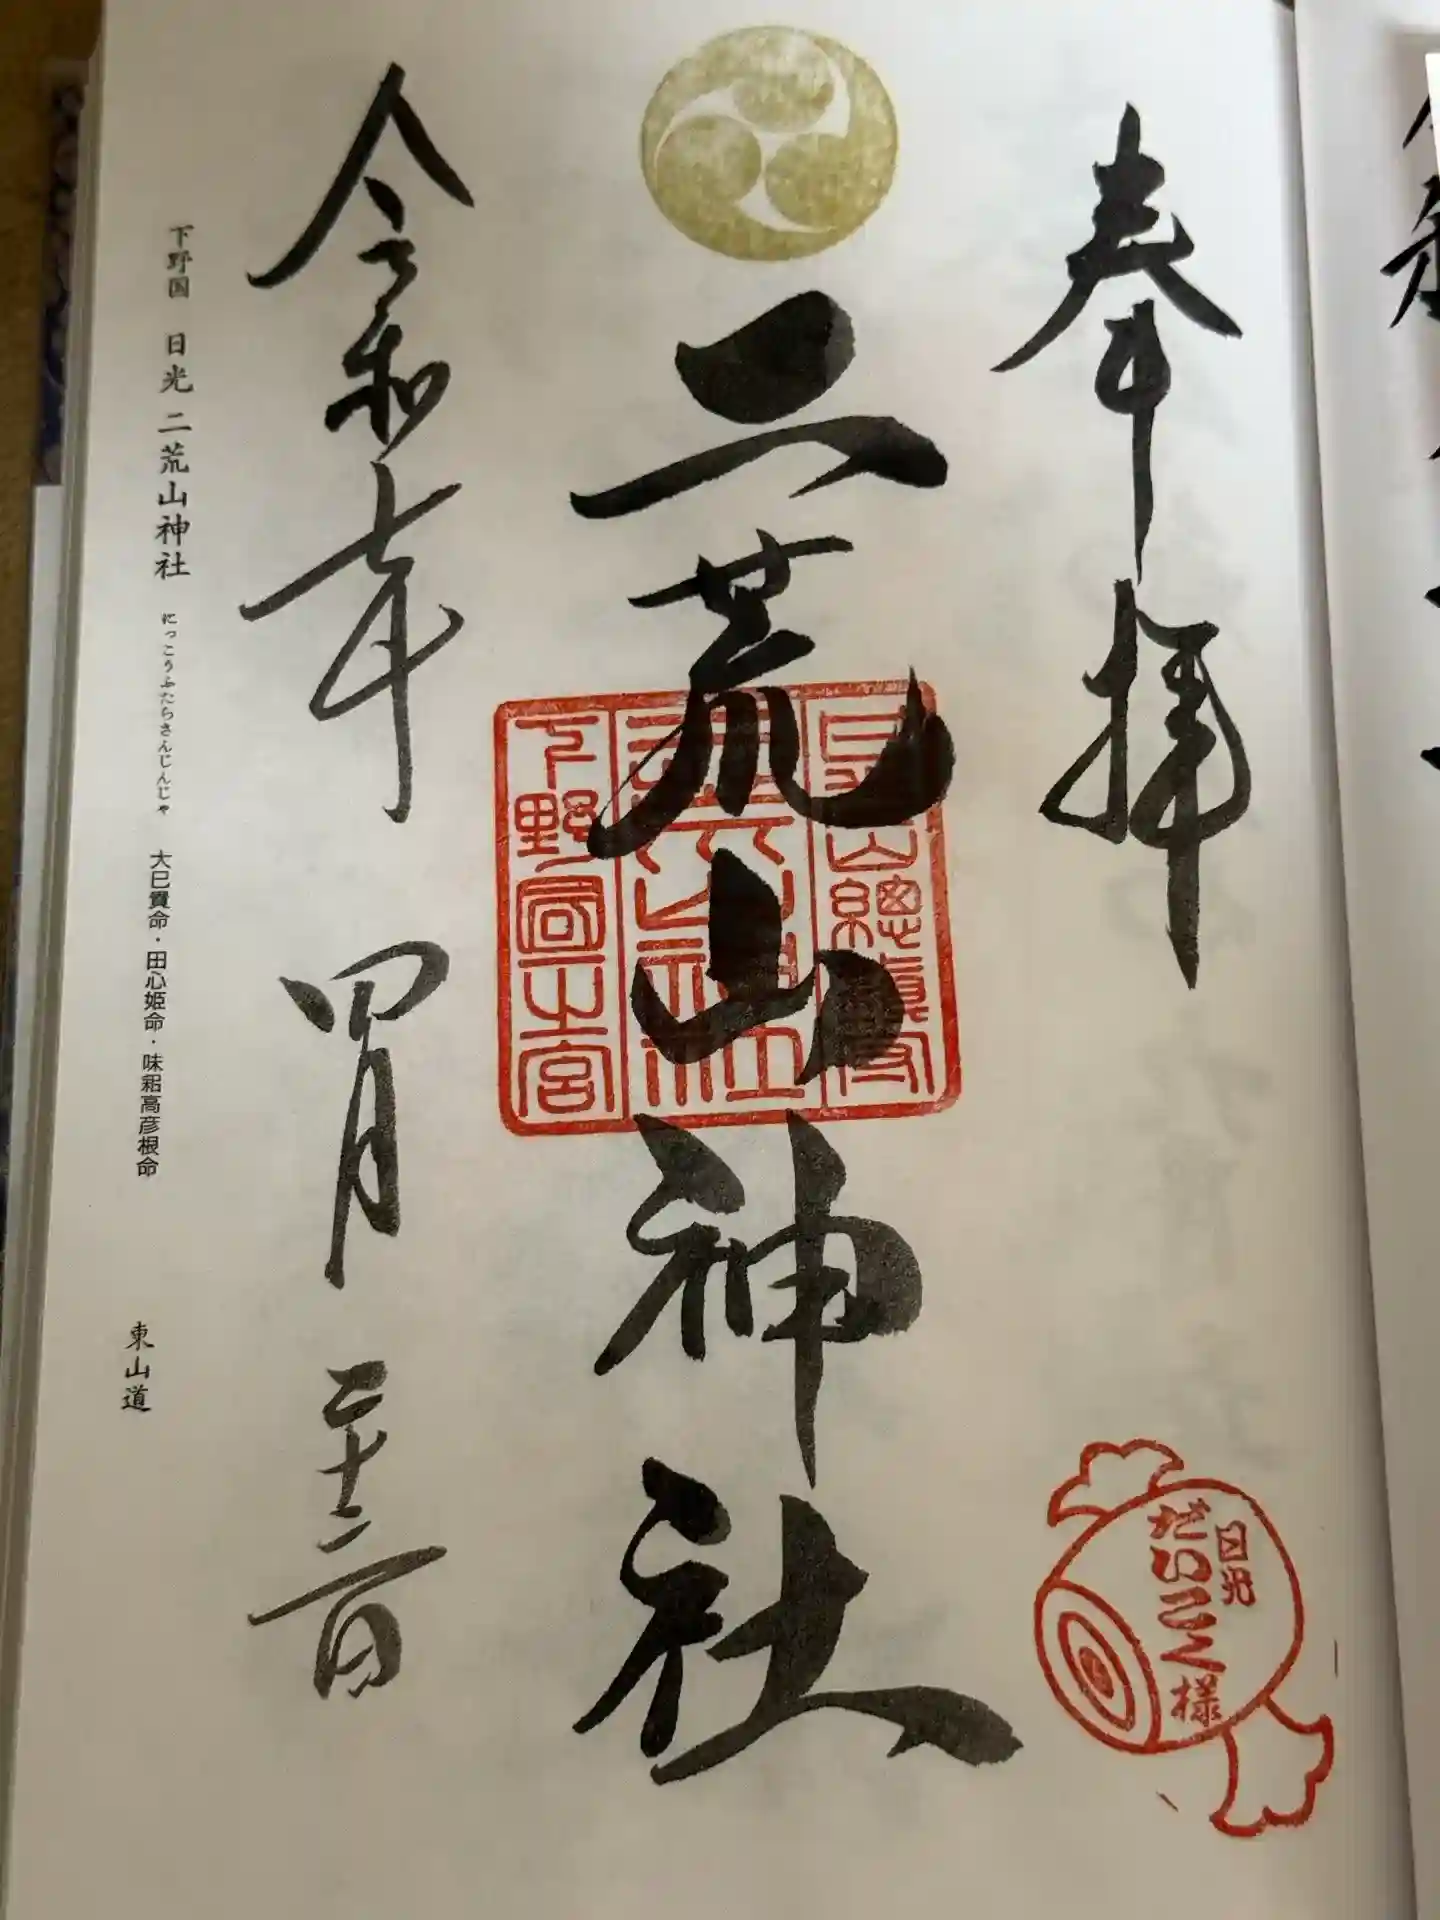 奉拝
日光
だいこく様
二荒山神社
下野國一之宮
令和七年 四月 二十二日
下野国 日光 二荒山神社 にっこうふたらさんじんじゃ 大己貴命・田心姫命・味耜高彦根命 東山道